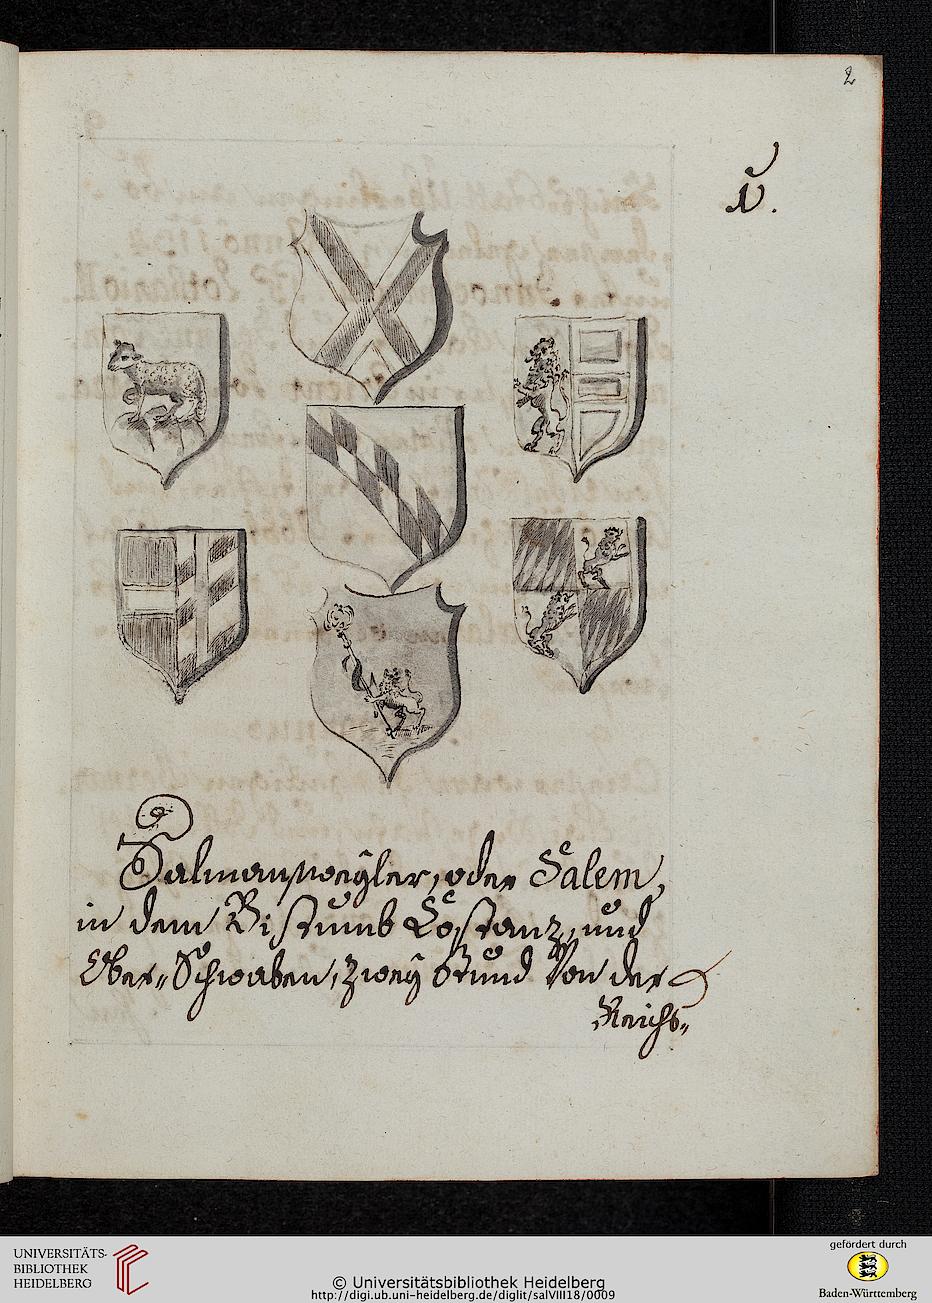 2
N.
Salmansweyler, oder Salem,
in dem Bistumb Costanz, und
Ober-Schwaben, zwey Stund von der
Reichs-
UNIVERSITÄTS-
BIBLIOTHEK
HEIDELBERG
© Universitätsbibliothek Heidelberg
http://digi.ub.uni-heidelberg.de/diglit/salVIII18/0009
gefördert durch
Baden-Württemberg